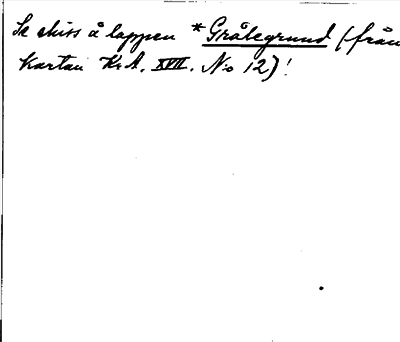 Se skiss å lappen *Grålegrund (från
kartan K.A. XVII. No 12)!